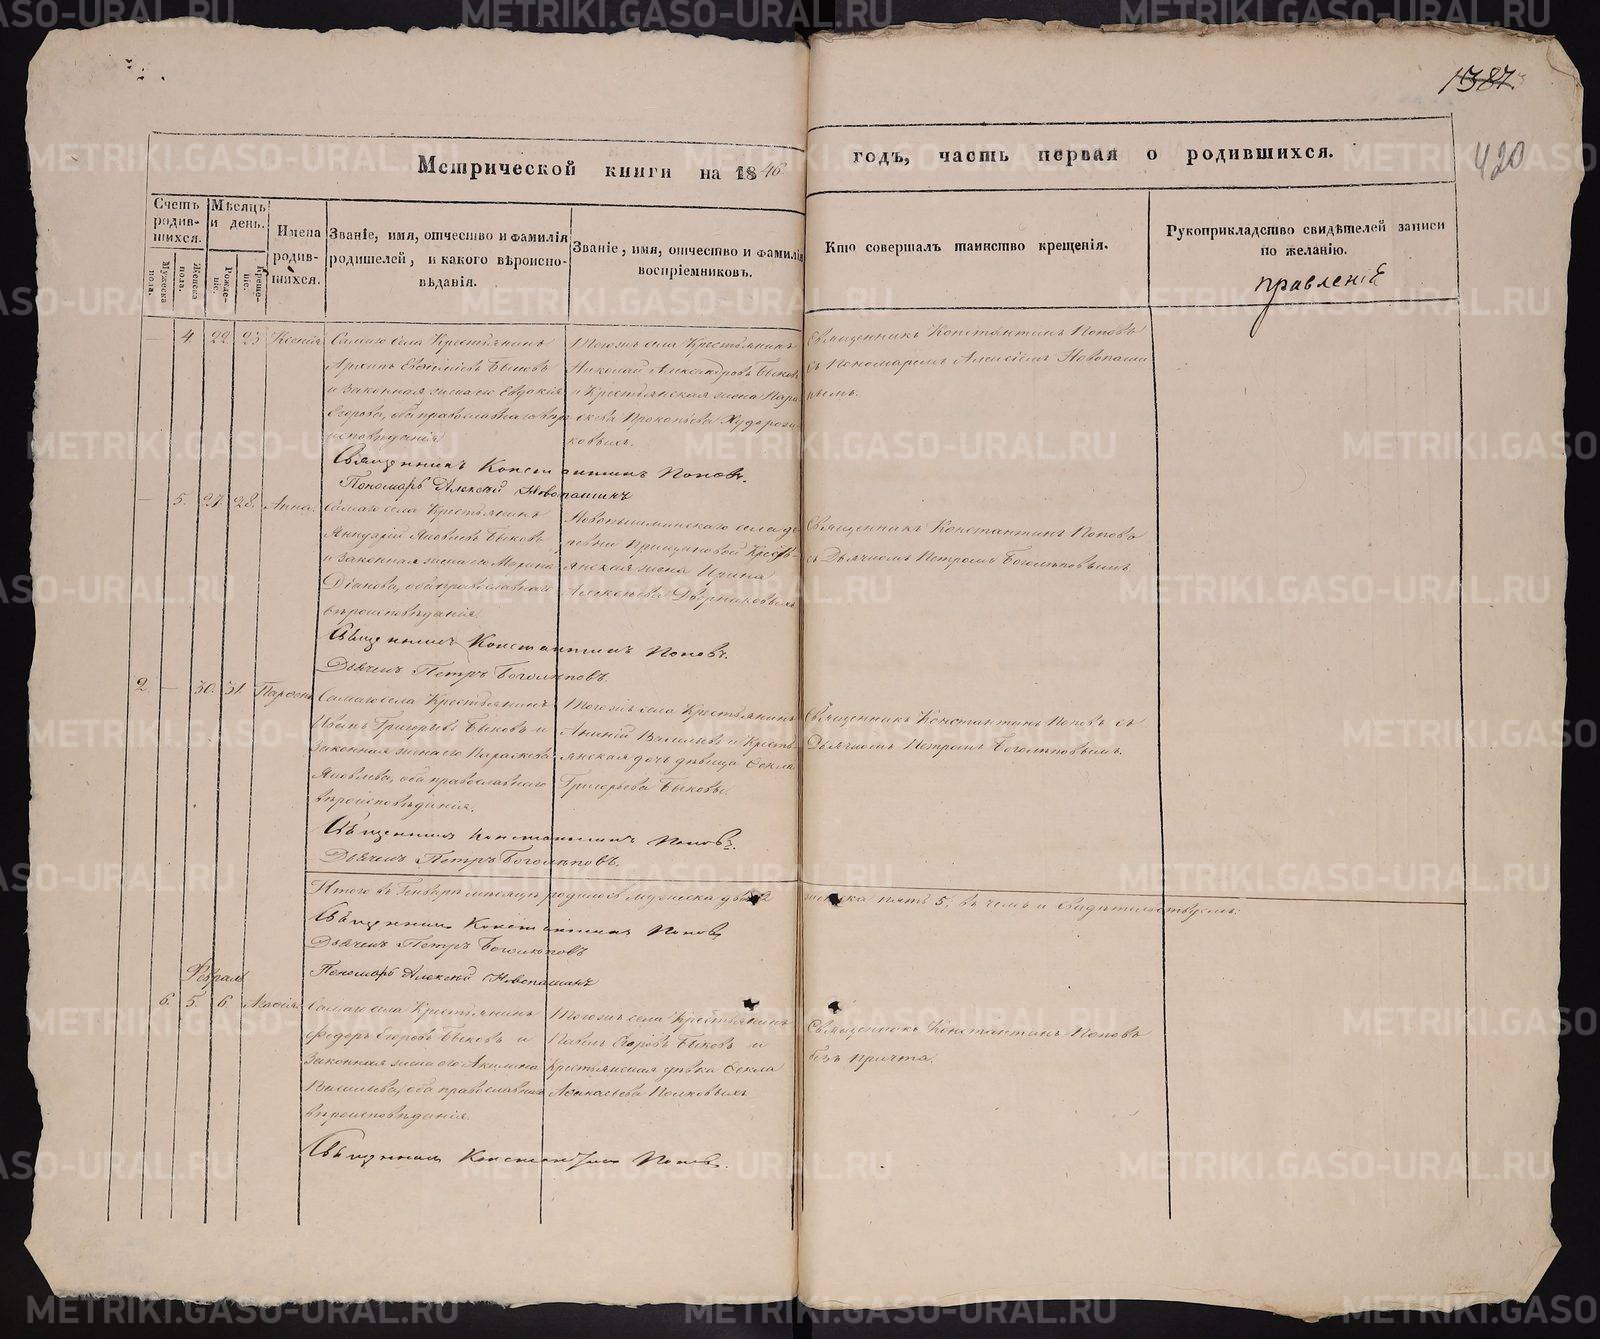 1387
420
Метрической книги на 1846 годъ, часть первая о родившихся.
Счетъ родив-шихся.
Мужеска пола.
Женска пола.
Мѣсяцъ и день.
Рожде-ніе.
Креще-ніе.
Имена родив-шихся.
Званіе, имя, отчество и фамилія родителей, и какого вѣроиспо-вѣданія.
Званіе, имя, отчество и фамилія воспріемниковъ.
Кто совершалъ таинство крещенія.
Рукоприкладство свидѣтелей записи по желанію.
правленіе
4. 22. 23. Ксенія
Самаго села Крестьянинъ
Архипъ Евфиміевъ Быковъ
и законная жена его Евдокія
Егорова, оба православнаго вѣро
исповѣданія
Тогожъ села Крестьянинъ
Николай Александровъ Быковъ
и Крестьянская жена Пара
скева Прокопьева
ковыхъ.
Священникъ Константинъ Поповъ
съ Пономаремъ Алексіемъ Новопаши
нымъ.
Священникъ Константинъ Поповъ.
Пономарь Алексѣй Новопашинъ
5. 27. 28. Анна.
Самаго села Крестьянинъ
Яковлевъ Быковъ
и законная жена его
оба православнаго
вѣроисповѣданія
Новопышминскаго села де
ревни Крестья
янская жена Ирина
Алексѣева
Священникъ Константинъ Поповъ
съ Дьячкомъ Петромъ Боголѣповымъ
Священникъ Константинъ Поповъ.
Дьячекъ Петръ Боголѣповъ.
2 — 30. 31.
Самаго села Крестьянинъ
Иванъ Григорьевъ Быковъ и
законная жена его Параскева
Яковлева, оба православнаго
вѣроисповѣданія.
Тогожъ села Крестьянинъ
Ананій Васильевъ и Кресть
янская дочь дѣвица Фекла
Григорьева Быковы
Священникъ Константинъ Поповъ съ
Дьячкомъ Петромъ Боголѣповымъ.
Священникъ Константинъ Поповъ.
Дьячекъ Петръ Боголѣповъ.
Итого въ Генварѣ мѣсяцѣ родилось мужеска два 2 женска пять 5, въ чемъ и свидѣтельствуемъ:
Священникъ Константинъ Поповъ
Дьячекъ Петръ Боголѣповъ
Пономарь Алексѣй Новопашинъ
Февраль
6. 5. 6.
Самаго села Крестьянинъ
Федоръ Егоровъ Быковъ и
законная жена его Акилина
Васильева, оба православнаго
вѣроисповѣданія.
Тогожъ села Крестьянинъ
Павелъ Егоровъ Быковъ и
Крестьянская дѣвка Фекла
Священникъ Константинъ Поповъ
безъ причта.
Священникъ Константинъ Поповъ.
METRIKI.GASO-URAL.RU